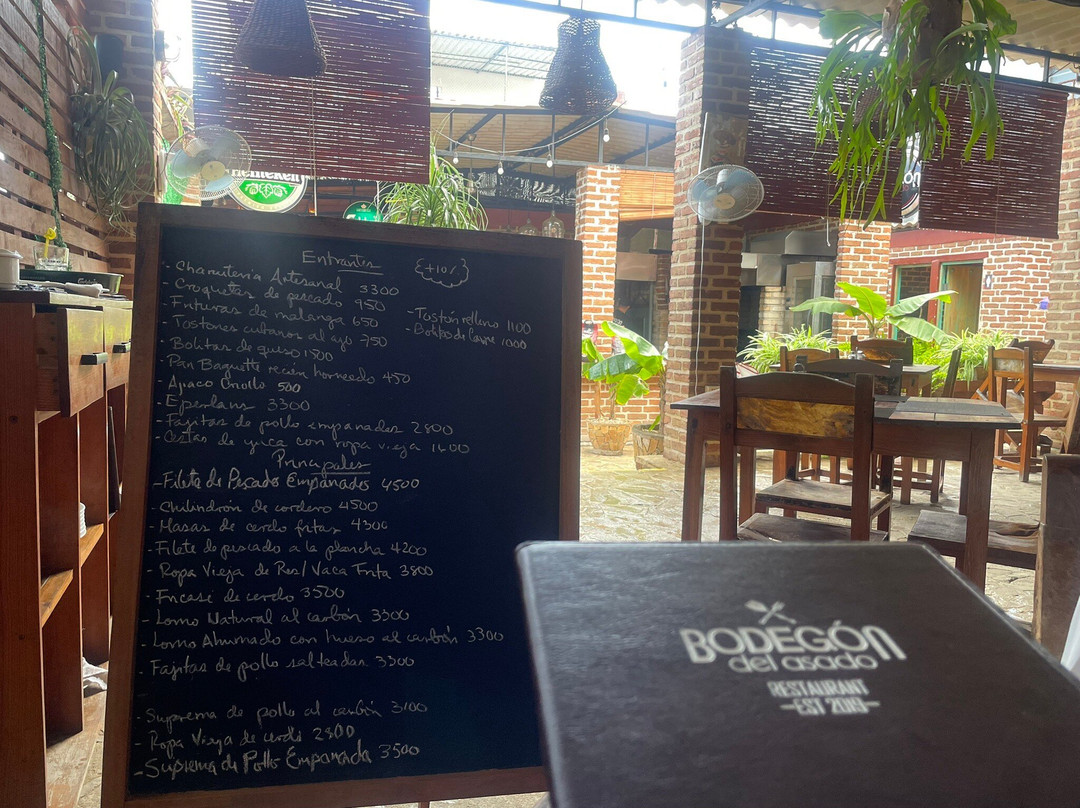 Heineken
Entrantes
{+10%}
- Charcutería Artesanal 3300
- Croquetas de pescado 950
- Frituras de malanga 650
- Tostones cubanos al ajo 750
- Bolitas de queso 1500
- Pan Baguette recien horneado 450
- Ajiaco Criollo 500
- Eperlans 3300
- Fajitas de pollo empanadas 2800
- Cestas de yuca con ropa vieja 1400
- Tostón relleno 1100
- 1000
Principales
- Filete de Pescado Empanados 4500
- Chilindrón de cordero 4500
- Masas de cerdo fritas 4300
- Filete de pescado a la plancha 4200
- Ropa Vieja de Res/Vaca Frita 3800
- de cerdo 3500
- Lomo Natural al carbón 3300
- Lomo Ahumado con hueso al carbón 3300
- Fajitas de pollo salteadas 3300
- Suprema de pollo al carbón 3100
- Ropa Vieja de cerdo 2800
- Suprema de Pollo Empanada 3500
BODEGÓN
del asado
RESTAURANT
EST 2019